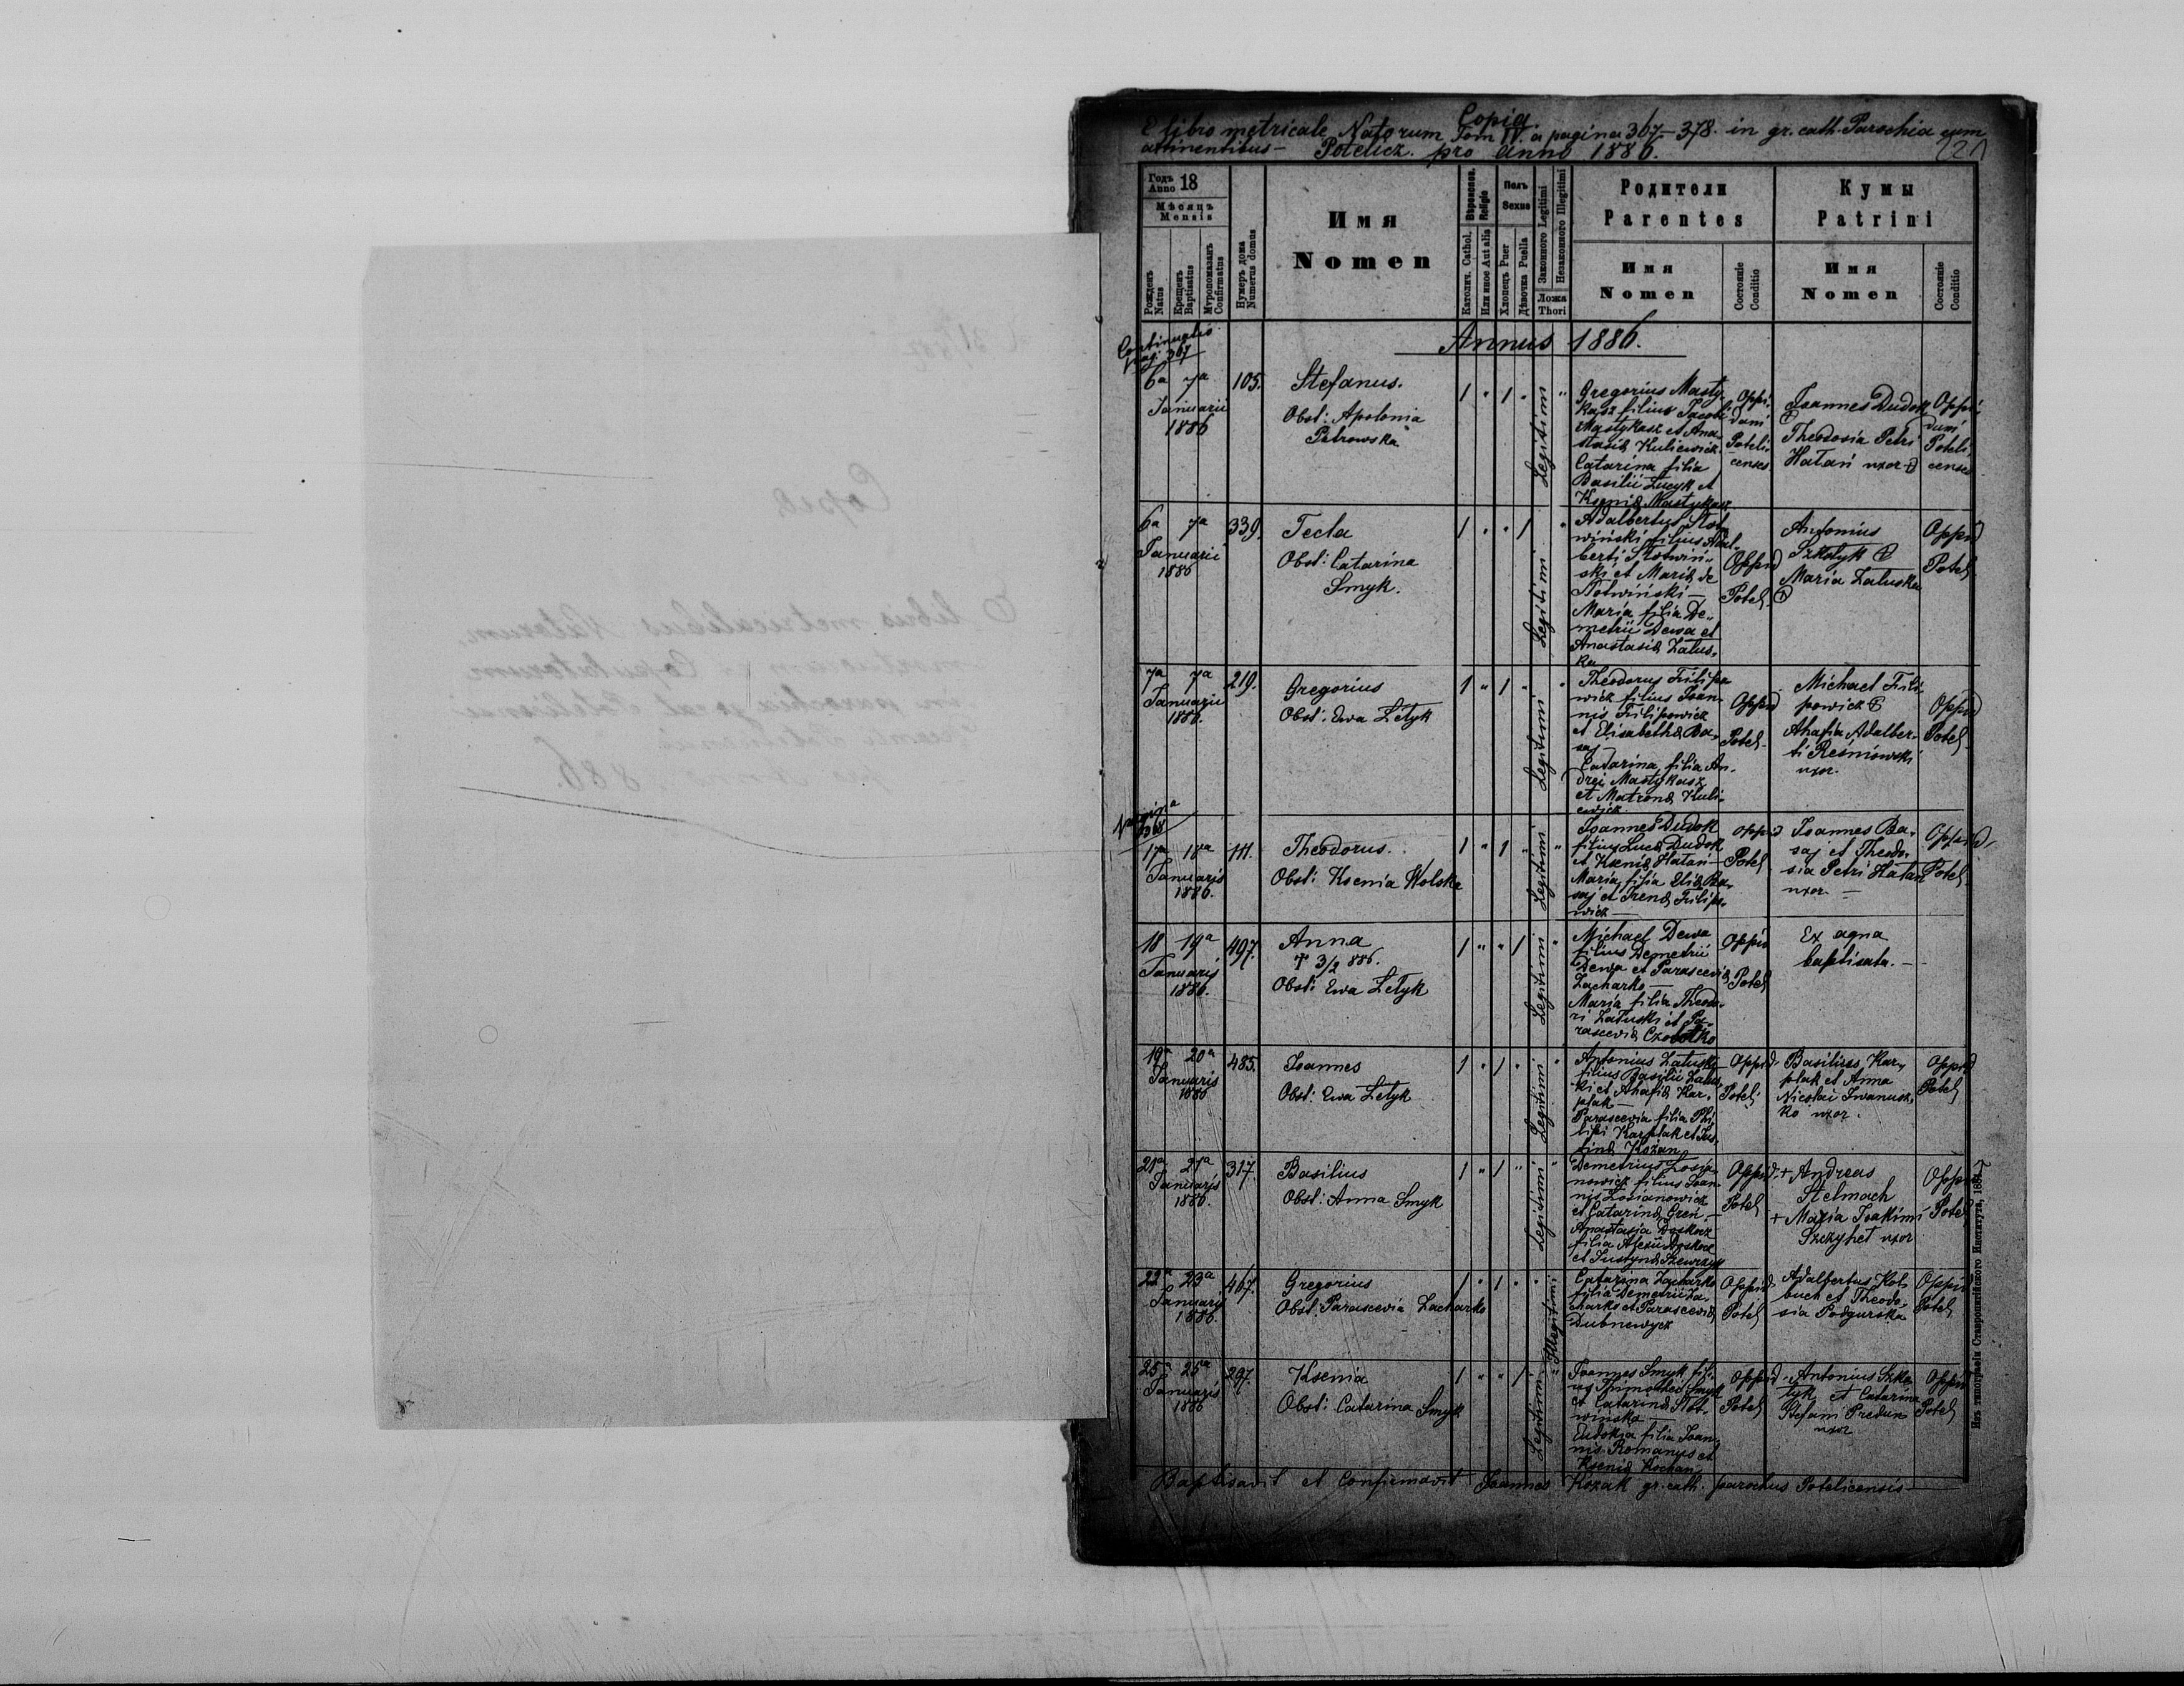 Copia
E libro metricale Natorum Tom IV. a pagina 367–378. in gr. cath. Parochia cum
attinentibus – Potelicz. pro anno 1886.
Годъ Anno 18
Мѣсяцъ Mensis
Рожденъ Natus
Крещенъ Baptisatus
Мѵропомазанъ Confirmatus
Нумеръ дома Numerus domus
Имя
Nomen
Вѣроисповѣд. Religio
Католич. Cathol.
Или иное Aut alia
Полъ
Sexus
Хлопецъ Puer
Дѣвочка Puella
Законного Legitimi
Незаконного Illegitimi
Ложа
Thori
Родители
Parentes
Имя
Nomen
Состояніе
Conditio
Кумы
Patrini
Имя
Nomen
Состояніе
Conditio
Continuatio
pag: 367
Annus 1886.
6a 7a
Januarii
1886
105.
Stefanus.
Obst: Apolonia
Petrowska
1 " 1 "
Legitimi
Gregorius Masty-
kasz filius Jacobi
Mastykasz et Ana-
stasiæ Kuliewicz
Catarina filia
Basilii Lucyk et
Kseniæ Mastykasz
Oppi-
dani
Poteli-
censes
Joannes Dudok
Theodosia Petri
Hatan uxor
Oppi-
dani
Poteli-
censes
6a 7a
Januarii
1886
339.
Tecla
Obst: Catarina
Smyk.
1 " " 1
Legitimi
Adalbertus Slot-
wiński filius Adal-
berti Slotwiń-
ski et Mariæ de
Slotwiński –
Maria filia De-
metrii Dewa et
Anastasiæ Zalus-
ka
Oppid
Potel.
Antonius
Szkolyk
Maria Zaluska
Oppid
Potel
7a 7a
Januarii
1886.
219.
Gregorius
Obst: Ewa Letyk
1 " 1 "
Legitimi
Theodorus Filipo-
wicz filius Joan-
nis Filipowicz
et Elisabethæ Ba-
saj –
Catarina filia An-
drei Mastykasz
et Matronæ Kuli-
ewicz
Oppid
Potel.
Michael Fili-
powicz
Ahafia Adalber-
ti Reśniowski
uxor.
Oppid
Potel
Pagina
368
17a 18a
Januaris
1886.
111.
Theodorus.
Obst: Ksenia Wolska
1 " 1 "
Legitimi
Joannes Dudok
filius Lucæ Dudok
et Kseniæ Hatan –
Maria filia Eliæ Ba-
saj et Irenæ Filipo-
wicz –
Oppid
Potel
Joannes Ba-
saj et Theodo-
sia Petri Hatan
uxor. –
Oppid
Potel
18 19a
Januarij
1886.
497.
Anna
† 3/2 886.
Obst: Ewa Letyk
1 " " 1
Legitimi
Michael Dewa
filius Demetrii
Dewa et Parasceviæ
Zacharko –
Maria filia Theodo-
ri Zaluski et Pa-
rasceviæ Czobotko
Oppid
Potel
Ex aqua
baptisata. –
19a 20a
Januaris
1886
485.
Joannes
Obst: Ewa Letyk
1 " 1 "
Legitimi
Antonius Zaluski
filius Basilii Zalus-
ki et Ahafiæ Kar-
plak –
Parascevia filia Phi-
lipi Karplak et Jus-
tinæ Kożan
Oppid.
Potel
Basilius Kar-
plak et Anna
Nicolai Iwanusz-
ko uxor.
Oppid
Potel
21a 21a
Januaris
1886.
317.
Basilius
Obst: Anna Smyk
1 " 1 "
Legitimi
Demetrius Zosia-
nowicz filius Joan-
nis Zosianowicz
et Catarinæ Greń –
Anastasia Doskocz
filia Alexii Doskocz
et Justynæ Szewczyk
Oppid.
Potel
+ Andreas
Stelmach
+ Maria Joakimi
Szczyhet uxor
Oppid
Potel
22a 23a
Januarij
1886.
467.
Gregorius
Obst: Parascevia Zacharko
1 " 1 "
Illegitimi
Catarina Zacharko
filia Demetrii Za-
charko et Parasceviæ
Dubnewycz
Oppid.
Potel
Adalbertus Kol-
buch et Theodo-
sia Podgurska
Oppid
Potel
25a 25a
Januaris
1886
297.
Ksenia
Obst: Catarina Smyk
1 " " 1
Legitimi
Joannes Smyk fili-
us Thimothei Smyk
et Catarinæ Slot-
wińska –
Eudokia filia Joan-
nis Romanus et
Kseniæ Kochan
Oppid.
Potel
Antonius Szko-
lyk et Catarina
Stefani Predun
uxor
Oppid
Potel
Baptisavit et Confirmavit Joannes Kozak gr. cath. parochus Potelicensis
Изъ типографіи Ставропигійского Института, 1884.